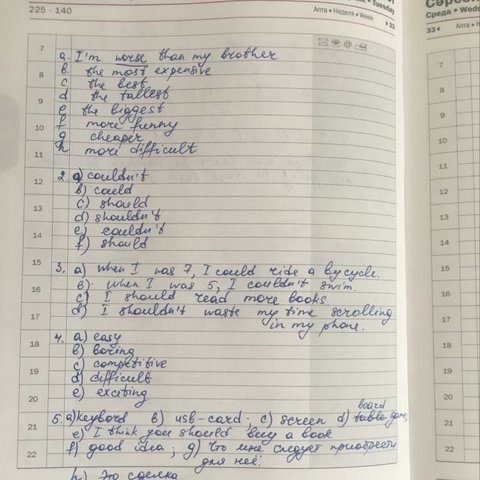 225 - 140
Апта • Неделя • Week
• Tuesday
33
7
8
9
10
11
12
13
14
15
16
17
18
19
20
21
22
a. I'm worse than my brother
b. the most expensive
c. the best
d the tallest
e the biggest
f more funny
g cheaper
h more difficult
2 a) couldn't
b) could
c) should
d) shouldn't
e) couldn't
f) should
3. a) when I was 7, I could ride a bycycle.
b) when I was 5, I couldn't swim
c) I should read more books
d) I shouldn't waste my time scrolling
in my phone.
4. a) easy
b) boring
c) competitive
d) difficult
e) exciting
board
5. a) keybord b) usb-card; c) screen d) table game
e) I think you should buy a book
f) good idea; g) Что мне следует приобрести
для неё?
h) Это сделка
Среда • Wedn
33
Апта •
7
8
9
10
11
12
13
14
15
16
17
18
19
20
21
22